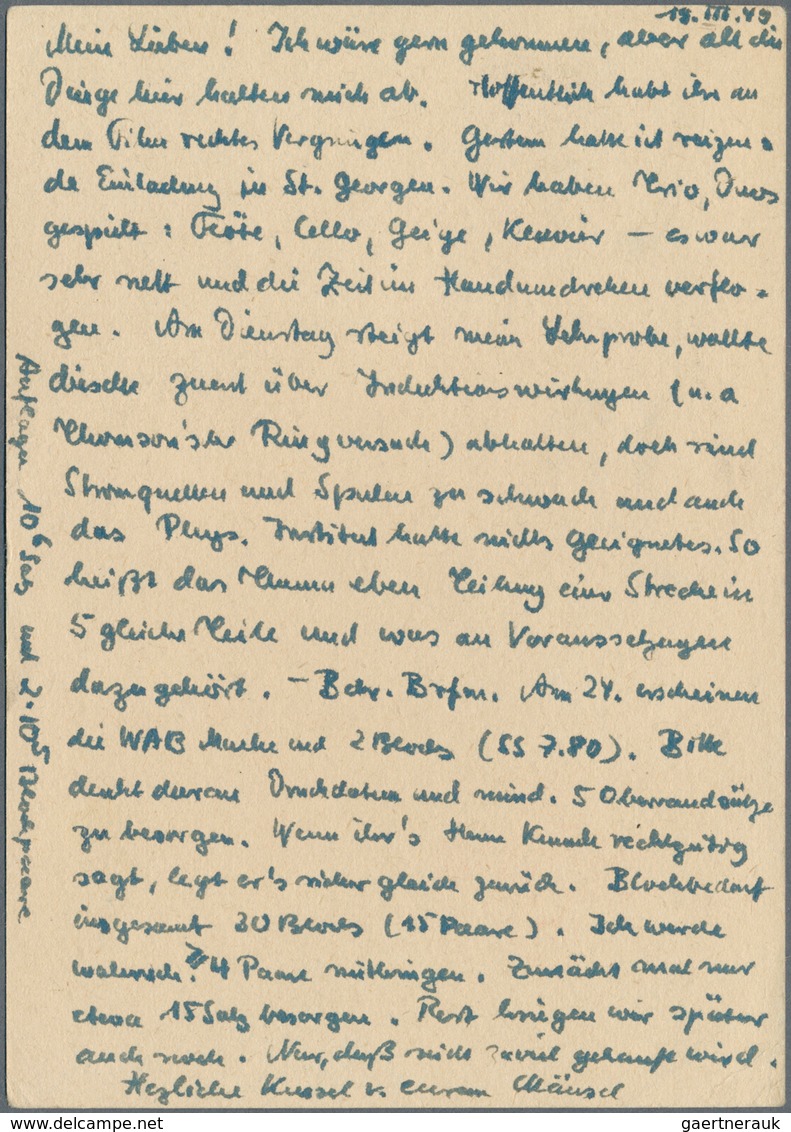 19.III.49
Meine Lieben! Ich wäre gern gekommen, aber all die
Dinge hier halten mich ab. Hoffentlich habt ihr an
dem Film rechtes Vergnügen. Gestern hatte ich reizen-
de Einladung in St. Georgen. Wir haben Trio, Duos
gespielt: Flöte, Cello, Geige, Klavier – es war
sehr nett und die Zeit im Handumdrehen verflo-
gen. Am Dienstag steigt meine Lehrprobe, wollte
dieselbe zuerst über Induktionswirkungen (u.a
Thomson'sche Ringversuch) abhalten, doch sind
Stromquellen und Spulen zu schwach und auch
das Phys. Institut hatte nichts Geeignetes. So
heißt das Thema eben Teilung einer Strecke in
5 gleiche Teile und was an Voraussetzungen
dazu gehört. – Betr. Brfm. Am 24. erscheinen
die WAB Marke und 2 Blocks (SS 7.80). Bitte
denkt daran Druckdaten und mind. 5 Oberrandsätze
zu besorgen. Wenn ihr's Herrn rechtzeitig
sagt, legt er's sicher gleich zurück. Blockbedarf
insgesamt 30 Blocks (15 Paare). Ich werde
wahrsch. 4 Paare mitbringen. Zunächst mal nur
etwa 15 Satz besorgen. Rest kriegen wir später
auch noch. Nur, daß nicht zuviel gekauft wird.
Herzliche Kussel v. eurem Mäusel
Auflagen 10⁶ Satz und 2·10⁵ Blockpaare
gaertnerauk